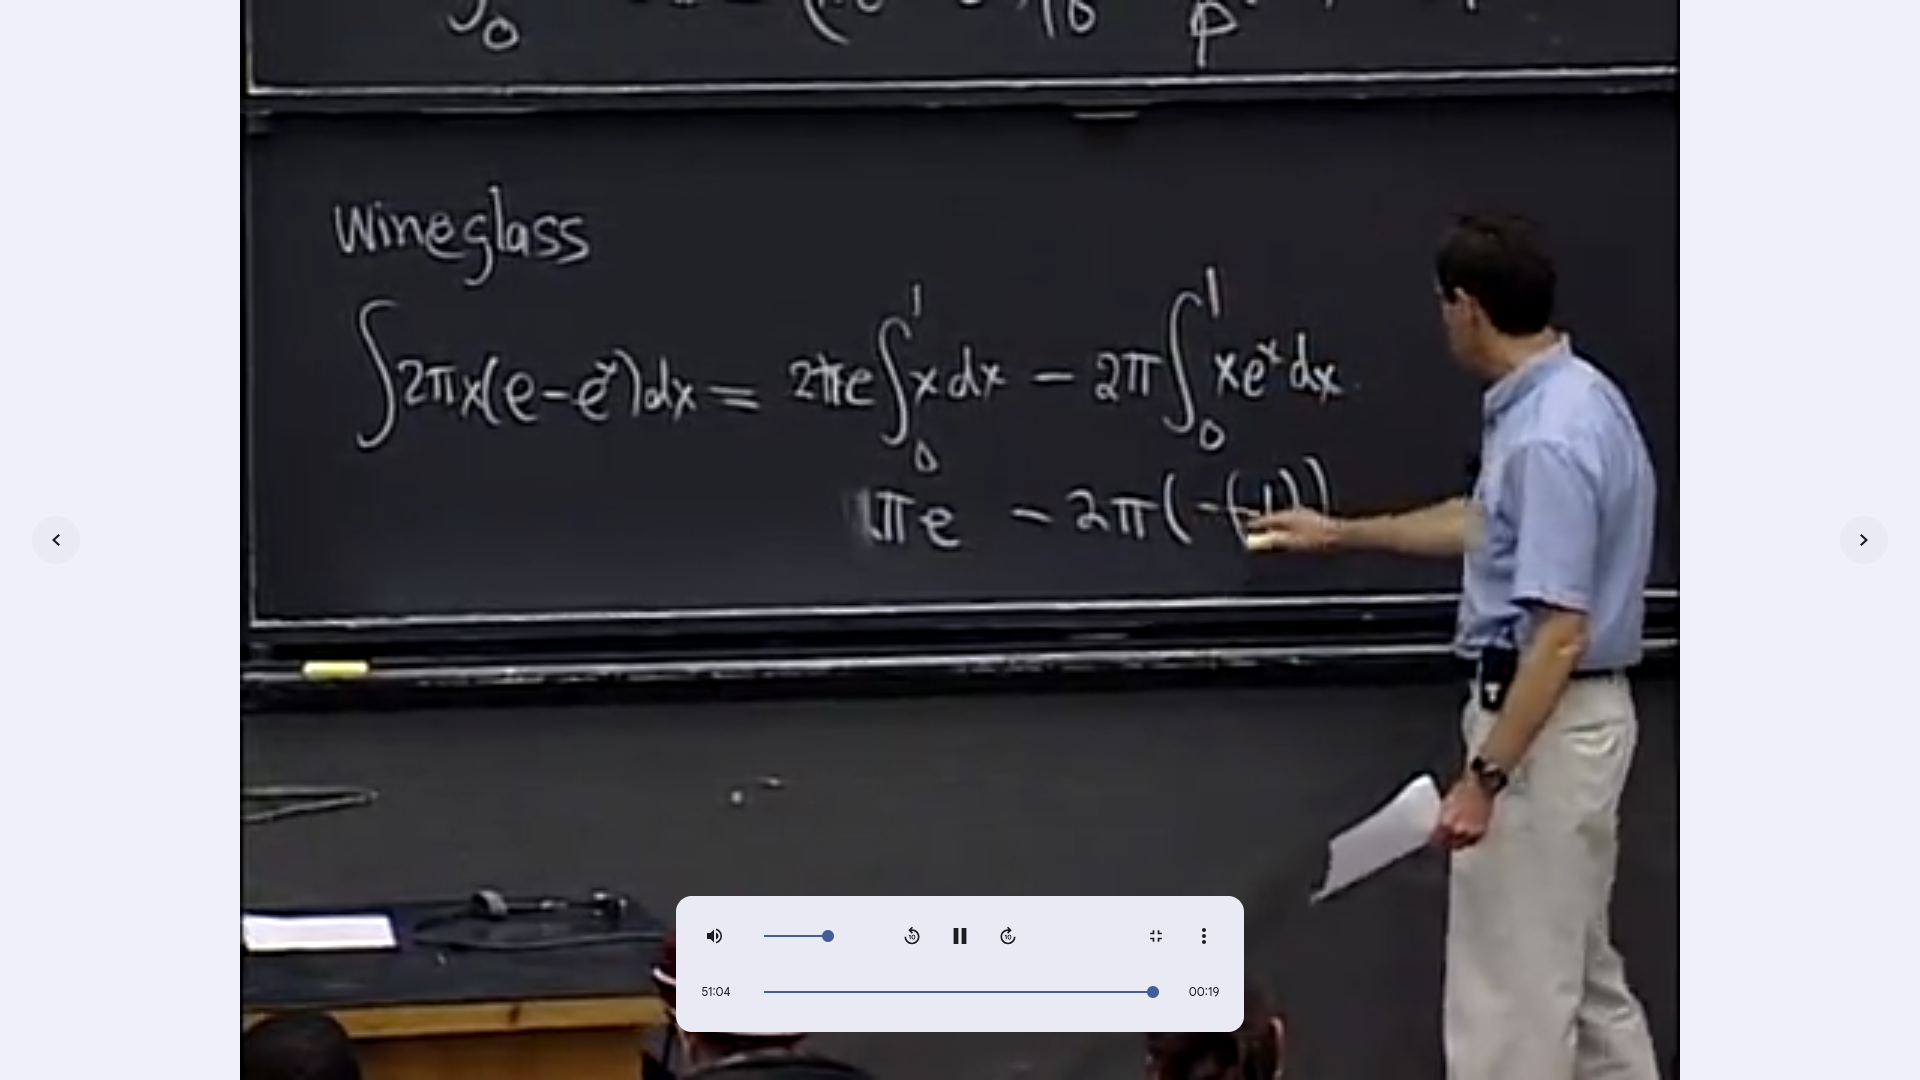 Wineglass
∫2πx(e-eˣ)dx = 2πe∫₀¹ x dx - 2π∫₀¹ xeˣdx
πe - 2π(-(-1))
10
10
51:04
00:19